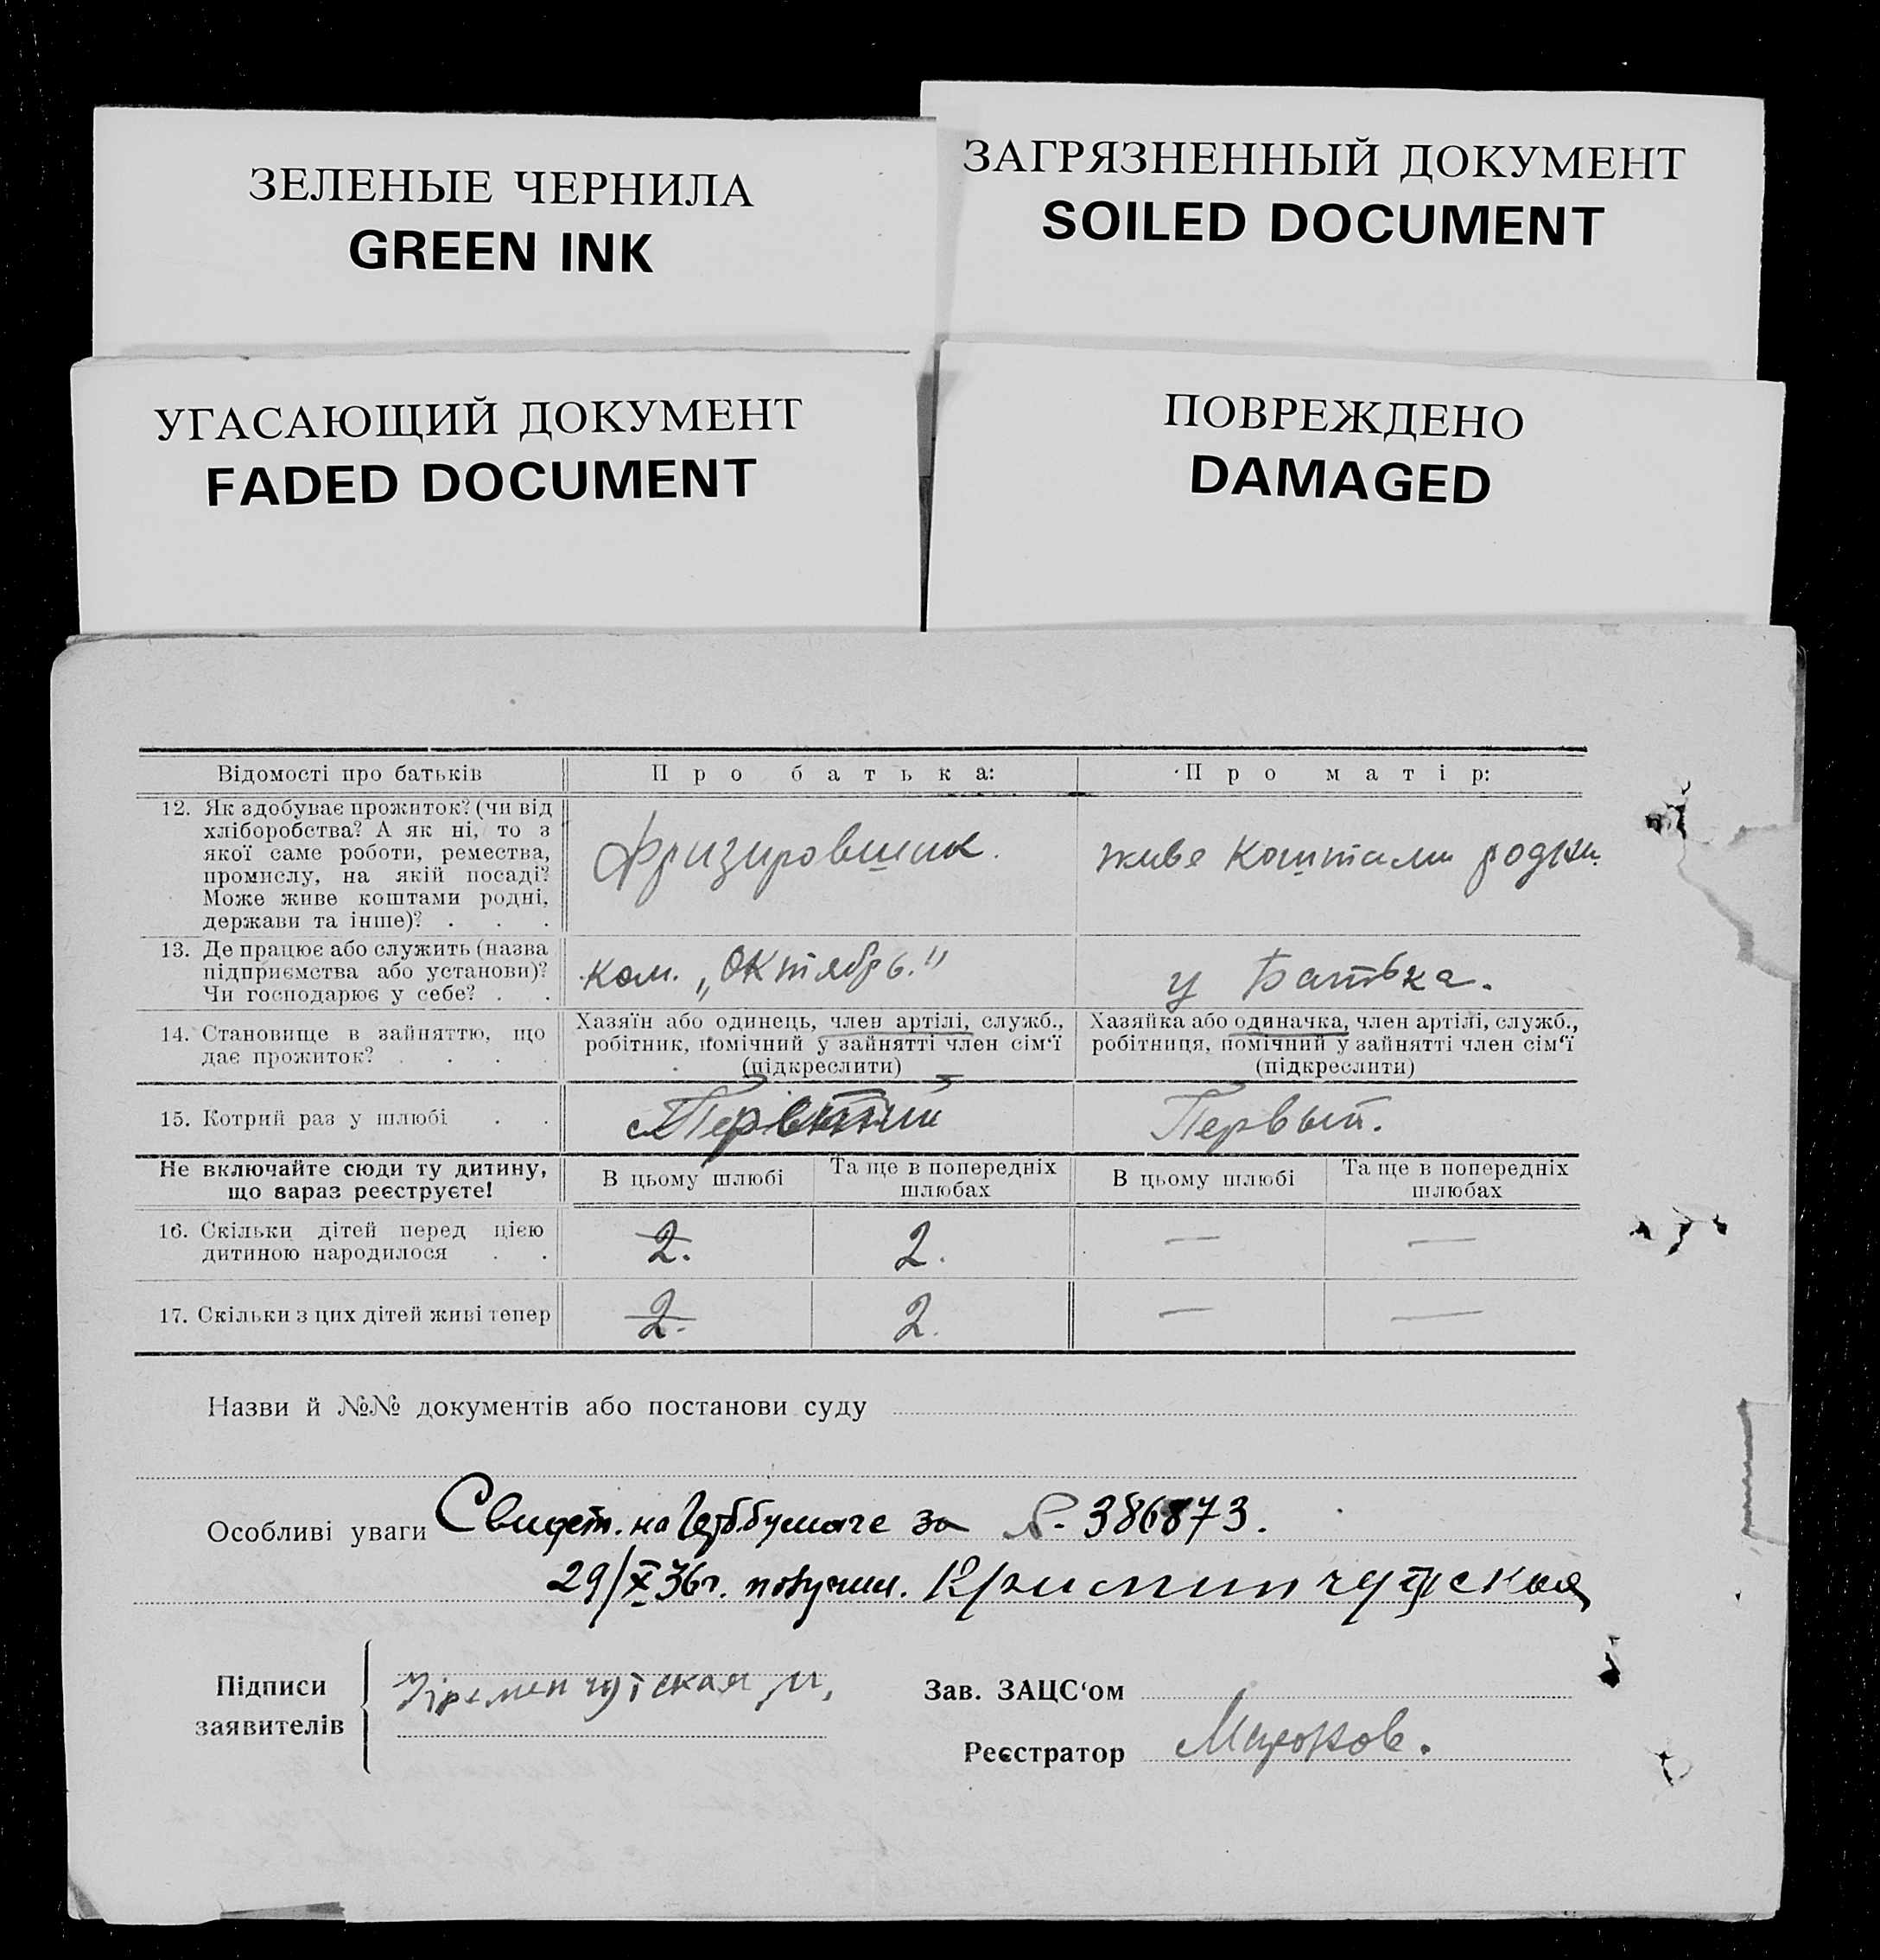 ЗЕЛЕНЫЕ ЧЕРНИЛА
GREEN INK
ЗАГРЯЗНЕННЫЙ ДОКУМЕНТ
SOILED DOCUMENT
УГАСАЮЩИЙ ДОКУМЕНТ
FADED DOCUMENT
ПОВРЕЖДЕНО
DAMAGED
Відомості про батьків
Про батька:
Про матір:
12. Як здобуває прожиток? (чи від
хліборобства? А як ні, то з
якої саме роботи, ремества,
промислу, на якій посаді?
Може живе коштами родні,
держави та інше)? . . .
фризировщик.
живе коштами родни.
13. Де працює або служить (назва
підприємства або установи)?
Чи господарює у себе? . .
ком. „Октябрь."
у Батька.
14. Становище в зайняттю, що
дає прожиток? . . . .
Хазяїн або одинець, член артілі, служб.,
робітник, помічний у зайнятті член сім'ї
(підкреслити)
Хазяйка або одиначка, член артілі, служб.,
робітниця, помічний у зайнятті член сім'ї
(підкреслити)
15. Котрий раз у шлюбі . .
Первый.
Не включайте сюди ту дитину,
що зараз реєструєте!
В цьому шлюбі
Та ще в попередніх
шлюбах
В цьому шлюбі
Та ще в попередніх
шлюбах
16. Скільки дітей перед цією
дитиною народилося . .
2.
2.
—
—
17. Скільки з цих дітей живі тепер
2.
2.
—
—
Назви й №№ документів або постанови суду
Особливі уваги Свидет. на Гербумаге за №. 386873.
29/X 36г. получил. Криминчугская
Підписи
заявителів
Кременчугская М,
Зав. ЗАЦС'ом
Реєстратор